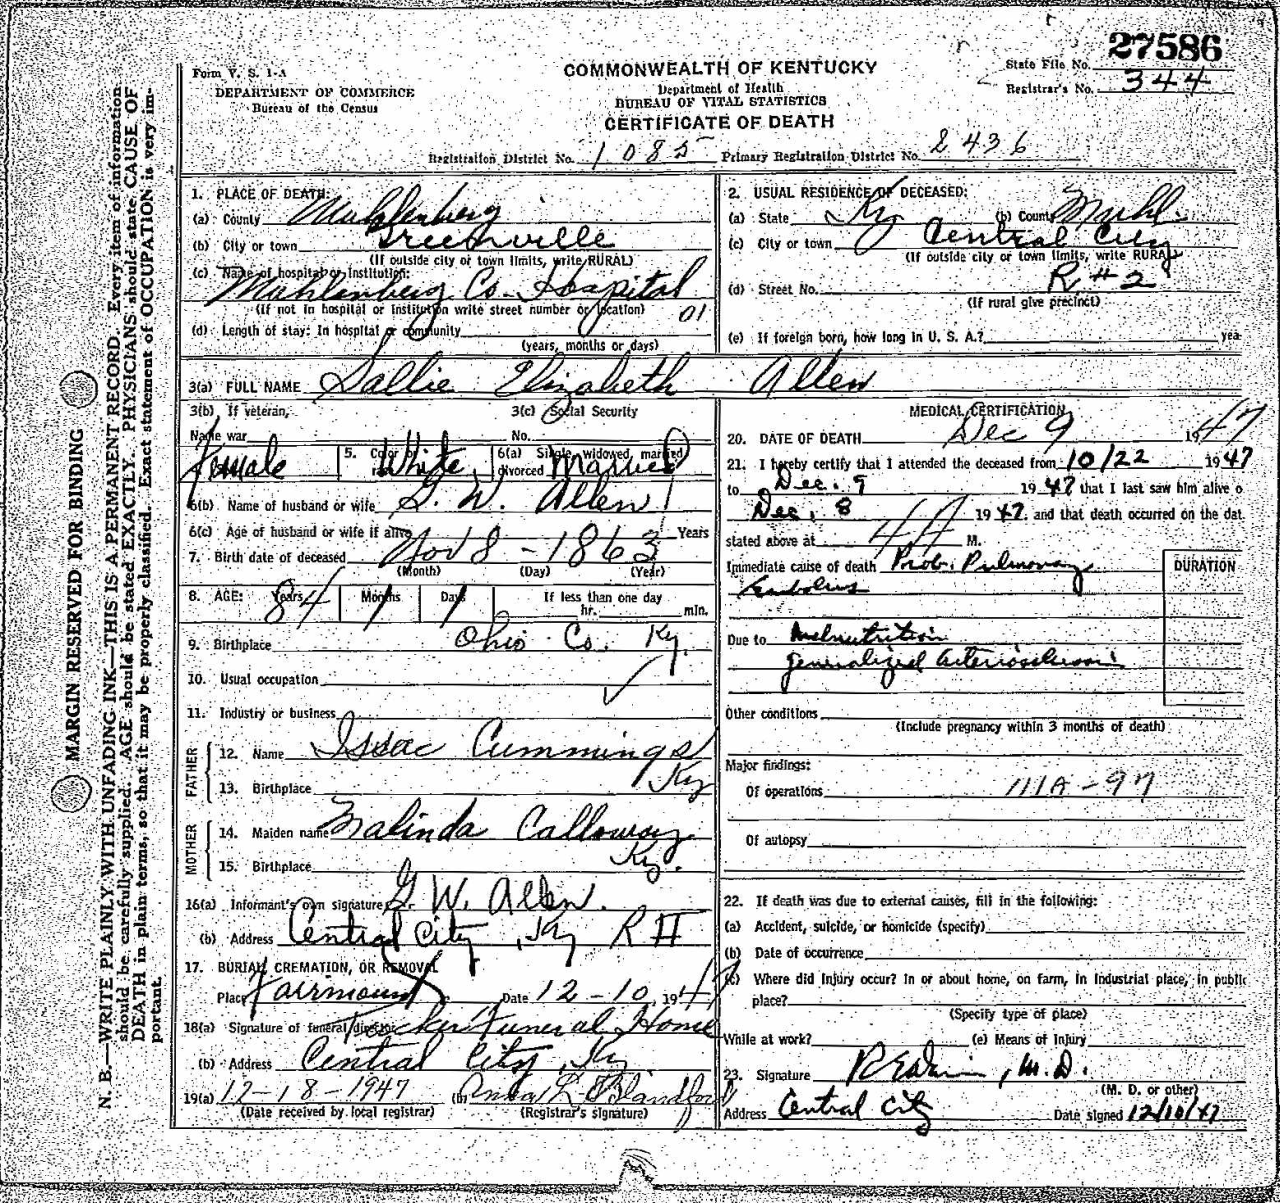 27586
Form V. S. 1-A
DEPARTMENT OF COMMERCE
Bureau of the Census
COMMONWEALTH OF KENTUCKY
Department of Health
BUREAU OF VITAL STATISTICS
CERTIFICATE OF DEATH
State File No.
Registrar's No. 344
Registration District No. 1085 Primary Registration District No. 2436
MARGIN RESERVED FOR BINDING
N. B.—WRITE PLAINLY WITH UNFADING INK—THIS IS A PERMANENT RECORD. Every item of information
should be carefully supplied. AGE should be stated EXACTLY. PHYSICIANS should state CAUSE OF
DEATH in plain terms, so that it may be properly classified. Exact statement of OCCUPATION is very im-
portant.
1. PLACE OF DEATH:
(a) County Muhlenberg
(b) City or town Greenville
(If outside city or town limits, write RURAL)
(c) Name of hospital or institution:
Muhlenberg Co. Hospital
(If not in hospital or institution write street number or location) 01
(d) Length of stay: In hospital or community
(years, months or days)
2. USUAL RESIDENCE OF DECEASED:
(a) State Ky (b) County Muhl.
(c) City or town Central City
(If outside city or town limits, write RURAL
(d) Street No. R #2
(If rural give precinct)
(e) If foreign born, how long in U. S. A.? yea
3(a) FULL NAME Sallie Elizabeth Allen
3(b) If veteran, 3(c) Social Security
Name war No.
Female 5. Color or race White 6(a) Single, widowed, married, divorced Married
6(b) Name of husband or wife G. W. Allen
6(c) Age of husband or wife if alive Years
7. Birth date of deceased Nov 8 - 1863
(Month) (Day) (Year)
8. AGE: Years 84 Months 1 Days 1 If less than one day
hr. min.
9. Birthplace Ohio Co. Ky.
10. Usual occupation
11. Industry or business
FATHER
12. Name Isaac Cummings
13. Birthplace Ky
MOTHER
14. Maiden name Malinda Calloway
15. Birthplace Ky.
16(a) Informant's own signature G. W. Allen.
(b) Address Central City, Ky R II
17. BURIAL, CREMATION, OR REMOVAL
Place Fairmount Date 12-10, 1947
18(a) Signature of funeral director Tucker Funeral Home
(b) Address Central City, Ky
19(a) 12-18-1947 (b) Anna L Blandford
(Date received by local registrar) (Registrar's signature)
MEDICAL CERTIFICATION
20. DATE OF DEATH Dec 9 1947
21. I hereby certify that I attended the deceased from 10/22 1947
to Dec. 9 1947 that I last saw him alive o
Dec. 8 1947. and that death occurred on the dat
stated above at 4 A M.
Immediate cause of death Prob. Pulmonary
Embolus
DURATION
Due to Malnutrition
generalized arteriosclerosis
Other conditions
(Include pregnancy within 3 months of death)
Major findings:
Of operations 111A-97
Of autopsy
22. If death was due to external causes, fill in the following:
(a) Accident, suicide, or homicide (specify)
(b) Date of occurrence
(c) Where did injury occur? In or about home, on farm, in industrial place, in public
place?
(Specify type of place)
While at work? (e) Means of Injury
23. Signature M.D.
(M. D. or other)
Address Central City Date signed 12/10/47